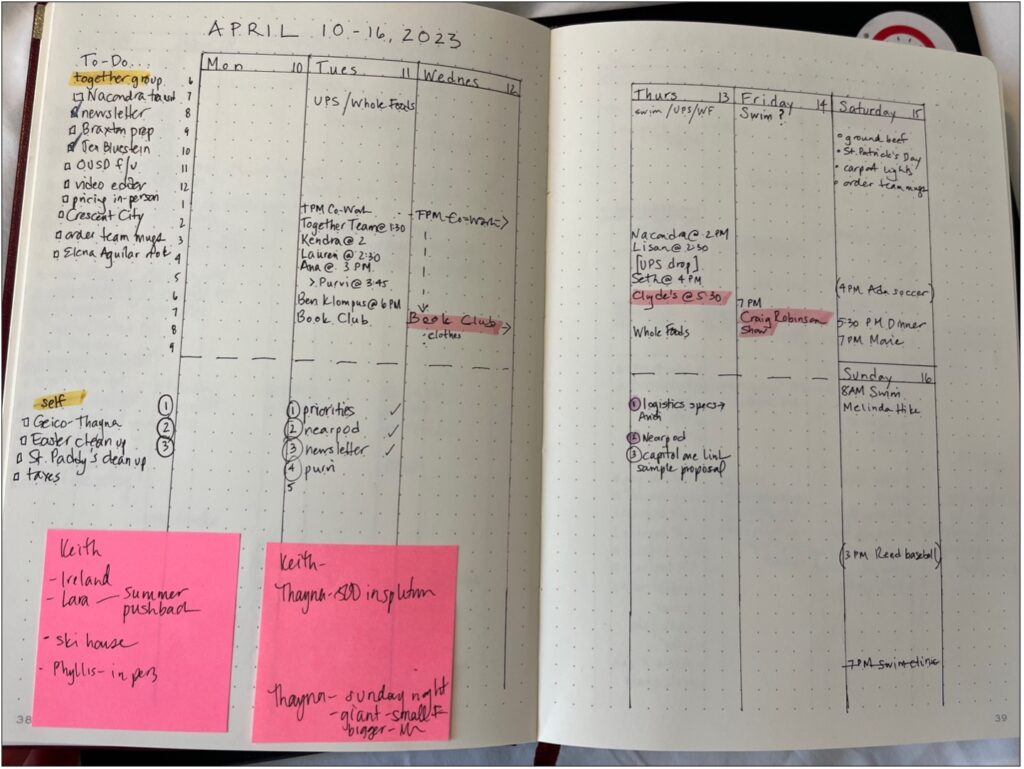 APRIL 10-16, 2023
To-Do...
together group
Nacondra
newsletter
Braxton prep
Bluestein
OUSD f/u
video editor
pricing in-person
Crescent City
order team mugs
Elena Aguilar
6
7
8
9
10
11
12
1
2
3
4
5
6
7
8
9
self
Geico-Thayna
Easter clean up
St. Paddy's clean up
taxes
Mon 10
1
2
3
Tues 11
UPS/Whole Foods
TPM Co-Work
Together Team @ 1:30
Kendra @ 2
Lauren @ 2:30
Ana @ 3 PM
> Purvi @ 3:45
Ben Klompus @ 6 PM
Book Club
1 priorities ✓
2 nearpod ✓
3 newsletter ✓
4 purvi
5
Wednes 12
TPM-Co-Work
Book Club
clothes
Keith
- Ireland
- Lara — summer
pushback
- ski house
- Phyllis - in pers
Keith-
Thayna-
Thayna- sunday night
- giant - small
bigger-
38
Thurs 13
swim/UPS/WF
Nacondra @ 2PM
Lisan @ 2:30
[UPS drop]
Seth @ 4 PM
Clyde's @ 5:30
Whole Foods
1 logistics specs→
2 Nearpod
3 capitol one link
sample proposal
Friday 14
Swim?
7 PM
Craig Robinson
Show
Saturday 15
• ground beef
• St. Patrick's Day
• carport lights
• order team mugs
(4PM Ada soccer)
5:30 PM Dinner
7PM Movie
Sunday 16
8AM Swim
Melinda Hike
(3 PM Reed baseball)
7 PM Swim clinic
39